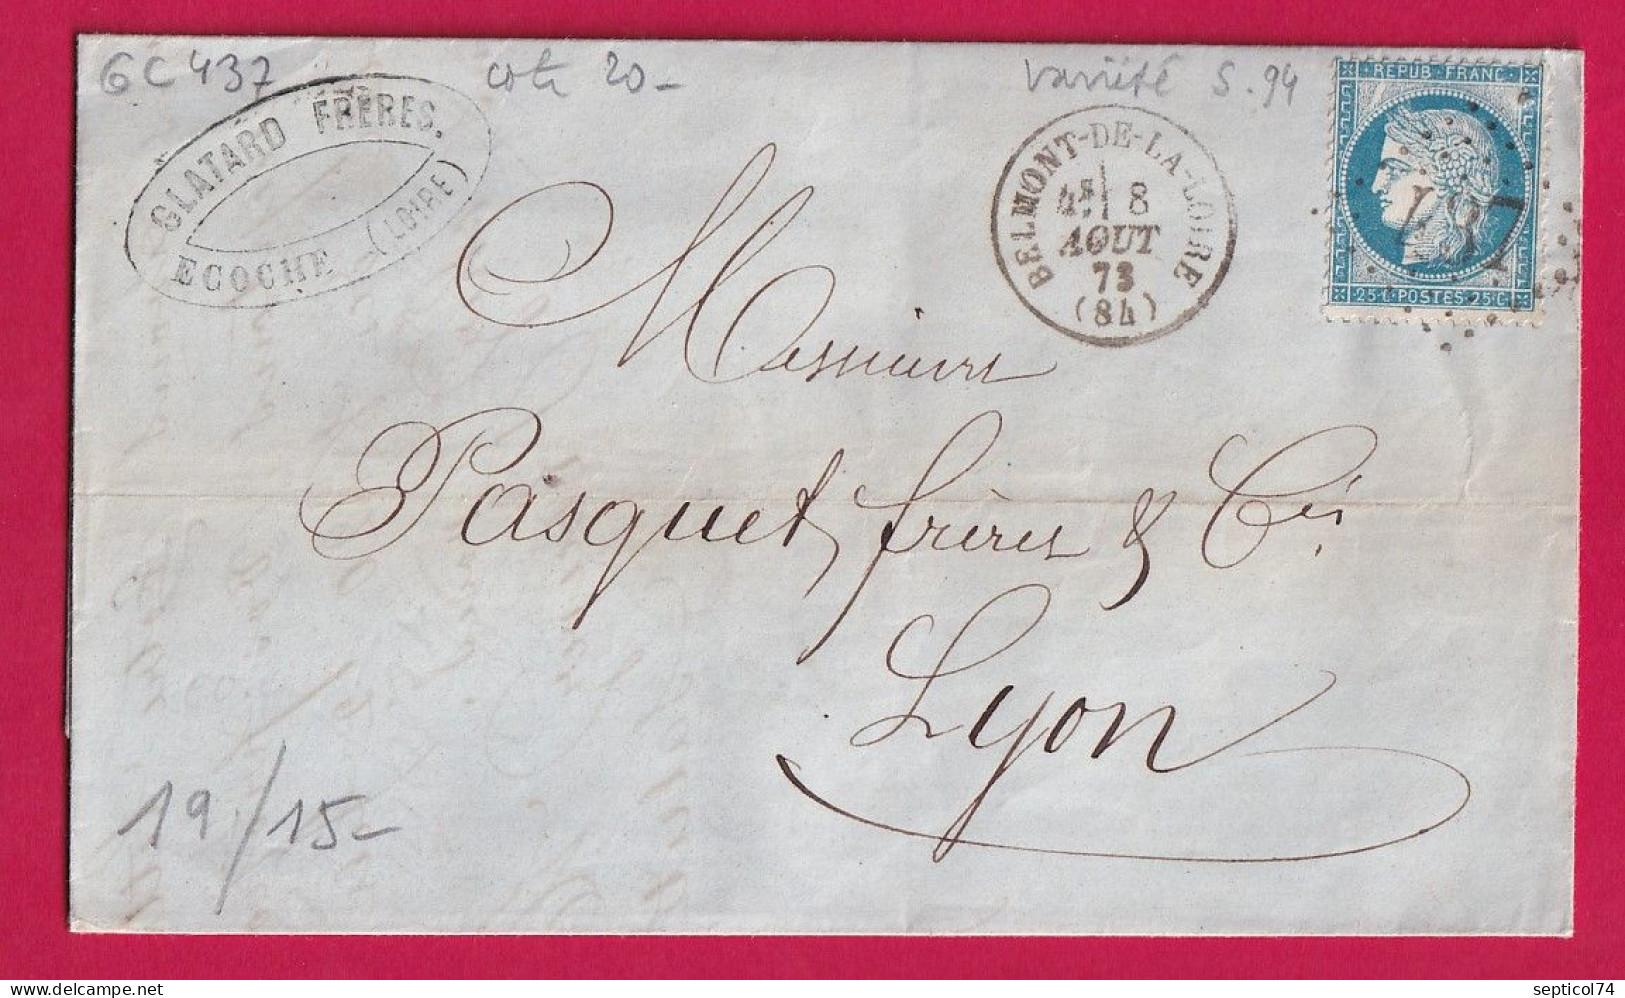 GC 437
cote 20-
variété S. 94
GLATARD FRERES.
ECOCHE (LOIRE)
BELMONT-DE-LA-LOIRE
4E 8
AOUT
73
(84)
REPUB. FRANC.
437
25 C. POSTES. 25 C.
Messieurs
Pasquet frères & Cie
Lyon
19/15-
septicol74